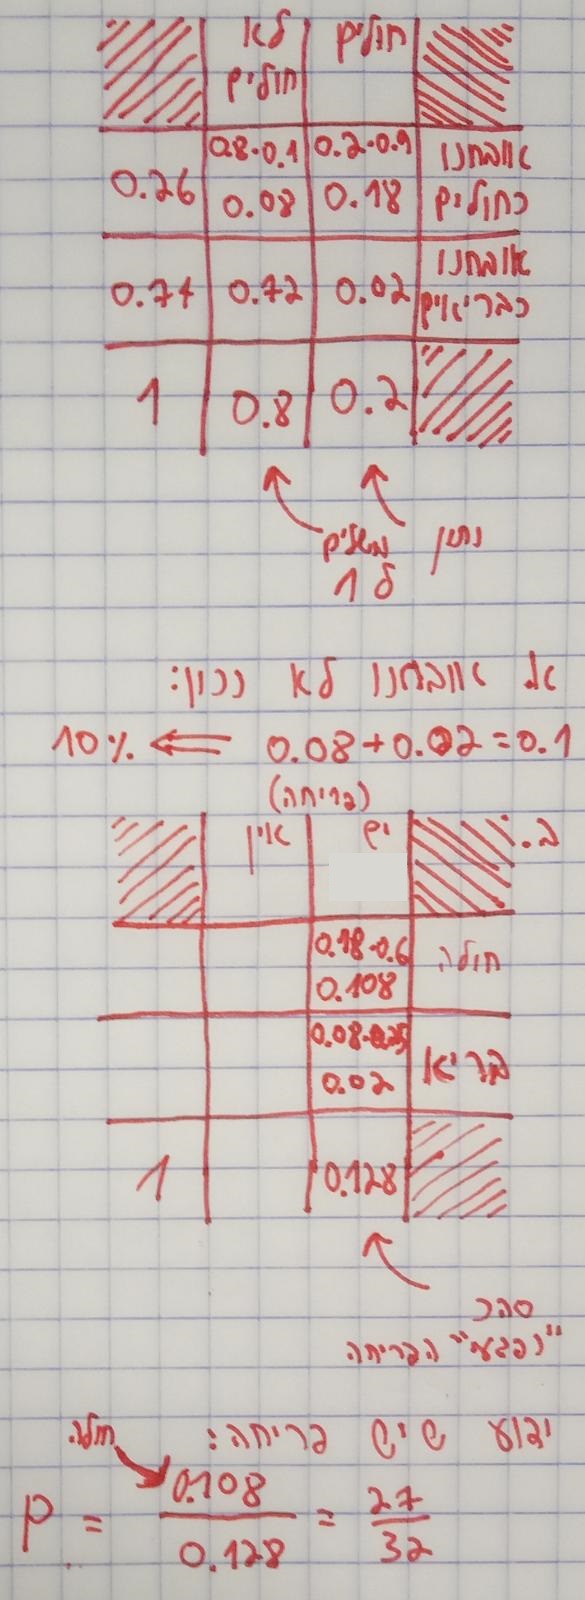 חולים לא חולים
אובחנו כחולים 0.2·0.9 0.8·0.1
0.18 0.08 0.26
אובחנו כבריאים 0.02 0.72 0.74
0.2 0.8 1
נתון משלים
ל 1
א. אובחנו לא נכון:
0.08+0.02=0.1 ⇐ 10%
(פריחה)
ב. יש אין
חולה 0.18·0.6
0.108
בריא 0.08·0.25
0.02
0.128 1
סהכ
"נפגעי" הפריחה
ידוע שיש פריחה:
חולה
P = 0.108/0.128 = 27/32